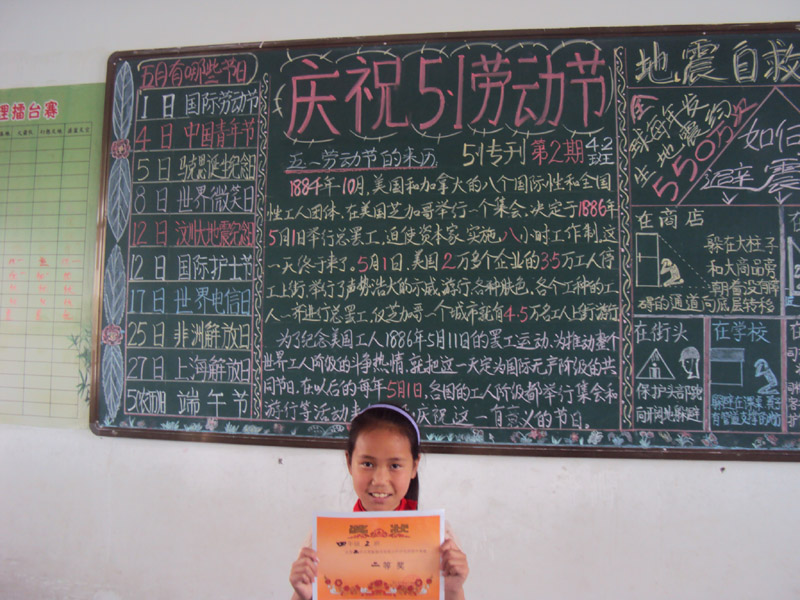 理擂台赛
五月有哪些节日
1日 国际劳动节
4日 中国青年节
5日 马克思诞生纪念日
8日 世界微笑日
12日 汶川大地震纪念日
12日 国际护士节
17日 世界电信日
25日 非洲解放日
27日 上海解放日
端午节
庆祝5.1劳动节
五一劳动节的来历
51专刊 第2期 4.2班
1884年10月,美国和加拿大的八个国际性和全国
性工人团体,在美国芝加哥举行一个集会,决定于1886年
5月1日举行总罢工,迫使资本家实施八小时工作制.这
一天终于来了.5月1日,美国2万多个企业的35万工人停
工上街,举行了声势浩大的示威游行,各种肤色,各个工种的工
人一齐进行总罢工,仅芝加哥一个城市就有4.5万名工人上街游行
为了纪念美国工人1886年5月11日的罢工运动,为推动整个
世界工人阶级的斗争热情,就把这一天定为国际无产阶级的共
同节日,在以后的每年5月1日,各国的工人阶级都举行集会和
游行等活动来庆祝这一有意义的节日.
地震自救
全球每年发生地震约550万次
如何
避震
在商店
躲在大柱子
和大商品旁
朝着没有障
碍的通道向底层转移
在街头
保护头部
在学校
奖状
2班
二等奖